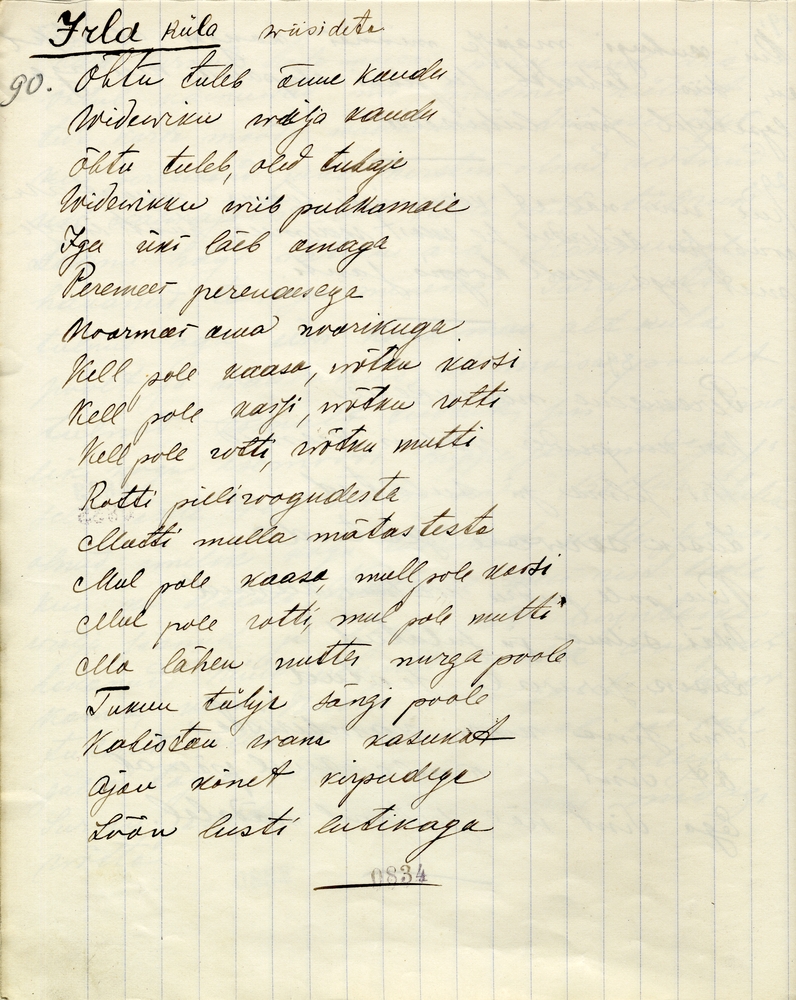 Irla küla wiisidete
90. Õhtu tuleb õnne kandu
Widewiku wälja kandu
Õhtu tuleb, oled tubaje
Widewikku wiib puhkamaie
Iga üks läeb omaga
Peremees perenaesega
Noormees oma noorikuga
Kell pole kaasa, wõtku kassi
Kell pole kassi, wõtku rotti
Kell pole rotti, wõtku mutti
Rotti pilliroogudesta
Mutti mulla mätastesta
Mul pole kaasa, mull pole kassi
Mul pole rotti, mul pole mutti
Ma lähen nuttes nurga poole
Tukun tülja sängi poole
Kabistan wana kasukat
Ajan könet kirpudega
Löön lusti lutikaga
0834